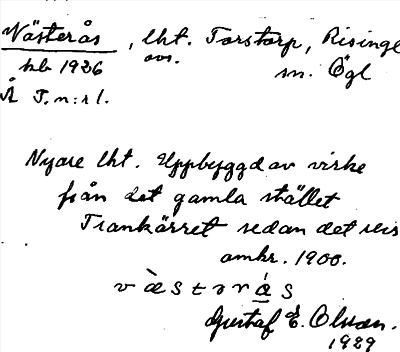 Västerås, lht. Torstorp, Risinge
avs.
hb 1936 sn. Ögl
Å T.n:r 1.
Nyare lht. Uppbyggd av virke
från det gamla stället
Trankärret sedan det revs
omkr. 1900.
væstərás
Gustaf E. Olsson.
1929